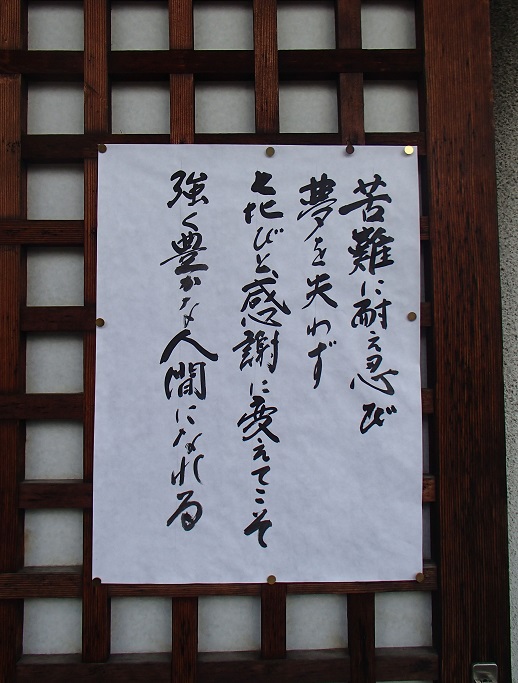 苦難に耐え忍び
夢を失わず
㐂びと感謝に変えてこそ
強く豊かな人間になれる